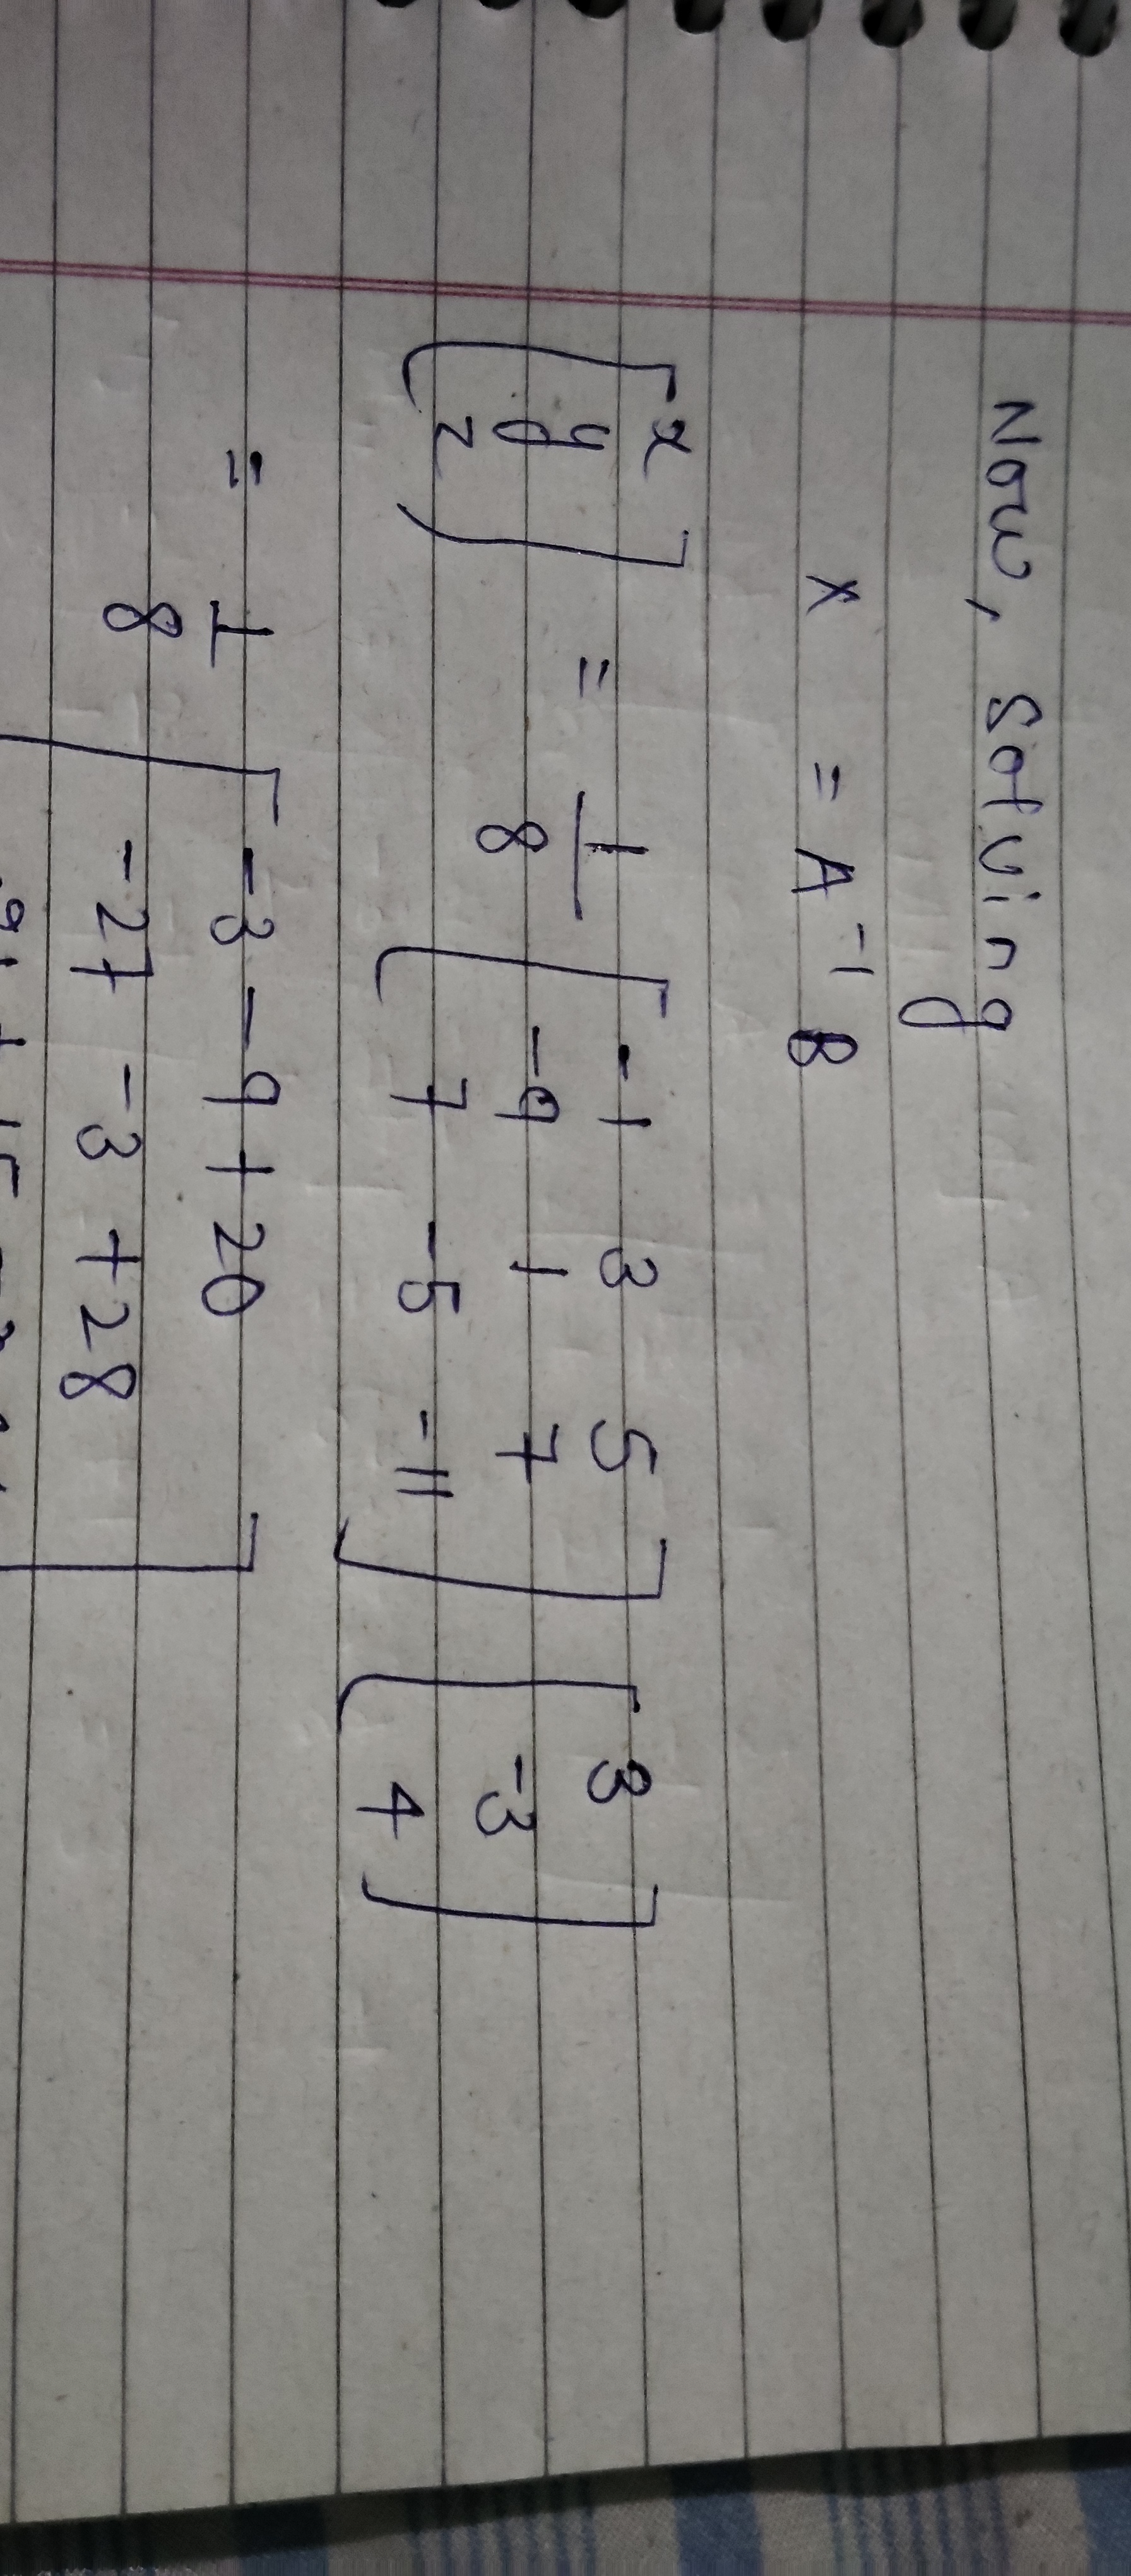 Now, Solving
X = A⁻¹ B
[x y z] = 1/8 [-1 3 5
-9 1 7
7 -5 -11] [3 -3 4]
= 1/8 [-3 -9 + 20
-27 -3 + 28